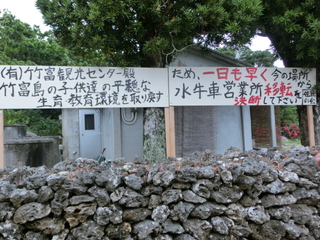 (有)竹富観光センター殿
竹富島の子供達の平穏な
生育・教育環境を取り戻す
ため、一日も早く今の場所
から
水牛車営業所移転を
決断して下さい